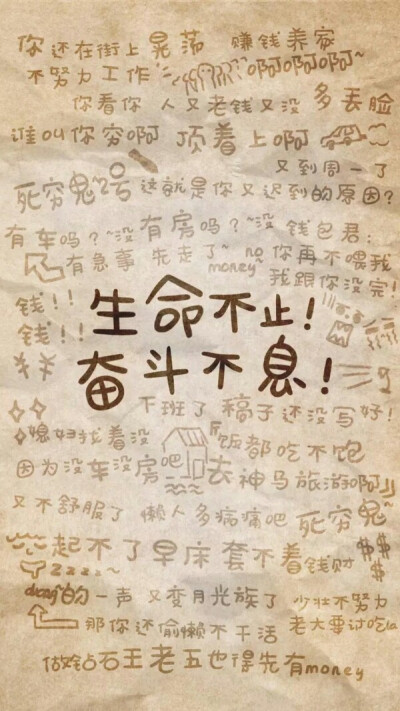 你还在街上晃荡 赚钱养家
不努力工作 啊啊啊啊~
你看你 人又老钱又没 多丢脸
谁叫你穷啊 顶着上啊
又到周一了
死穷鬼~2号 这就是你又迟到的原因?
有车吗?~没 有房吗?~没 钱包君:
有急事 先走了~ no money 你再不喂我
我跟你没完!
钱!!
钱!!
生命不止!
奋斗不息!
下班了 稿子还没写好!
媳妇找着没 饭都吃不饱
因为没车没房吧 去神马旅游啊!!
又不舒服了 懒人多病痛吧 死穷鬼~
起不了早床套不着钱财 $$
zzzz~ $
duang的一声 又变月光族了 少壮不努力
那你还偷懒不干活 老大要讨吃la
做钻石王老五也得先有money